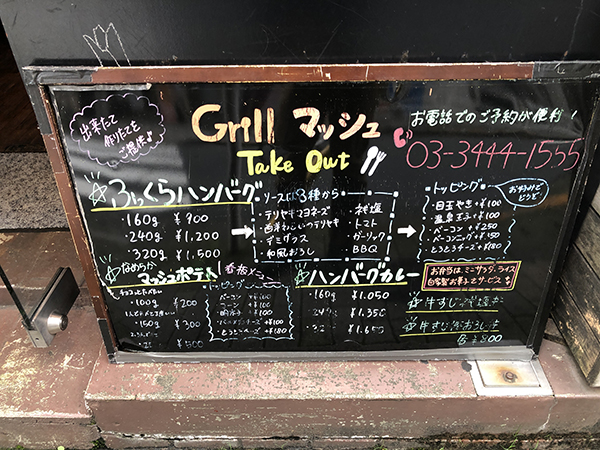 出来たて
作りたてを
ご提供♪
Grill マッシュ
Take Out
お電話でのご予約が便利!
03-3444-1555
☆ふっくらハンバーグ
・160g ¥900
・240g ¥1,200
・320g ¥1,500
ソースは8種から
・テリヤキマヨネーズ
・西洋わさびのテリヤキ
・デミグラス
・和風おろし
・ネギ塩
・トマト
・ガーリック
・BBQ
トッピング
お好みで
どうぞ
・目玉やき +¥100
・温泉玉子 +¥100
・ベーコン +¥250
・とろとろチーズ +¥180
お弁当は、ミニサラダ、ライス
自家製お菓子サービス
☆なめらか
マッシュポテト
看板メニュー
・100g ¥200
・150g ¥300
¥500
トッピング
・ベーコン +¥100
・コーン +¥100
・明太子 +¥100
・とろとろチーズ +¥180
☆ハンバーグカレー
・160g ¥1,050
・240g ¥1,350
¥1,650
☆牛すじネギ塩丼
☆牛すじネギおろし丼
各¥800